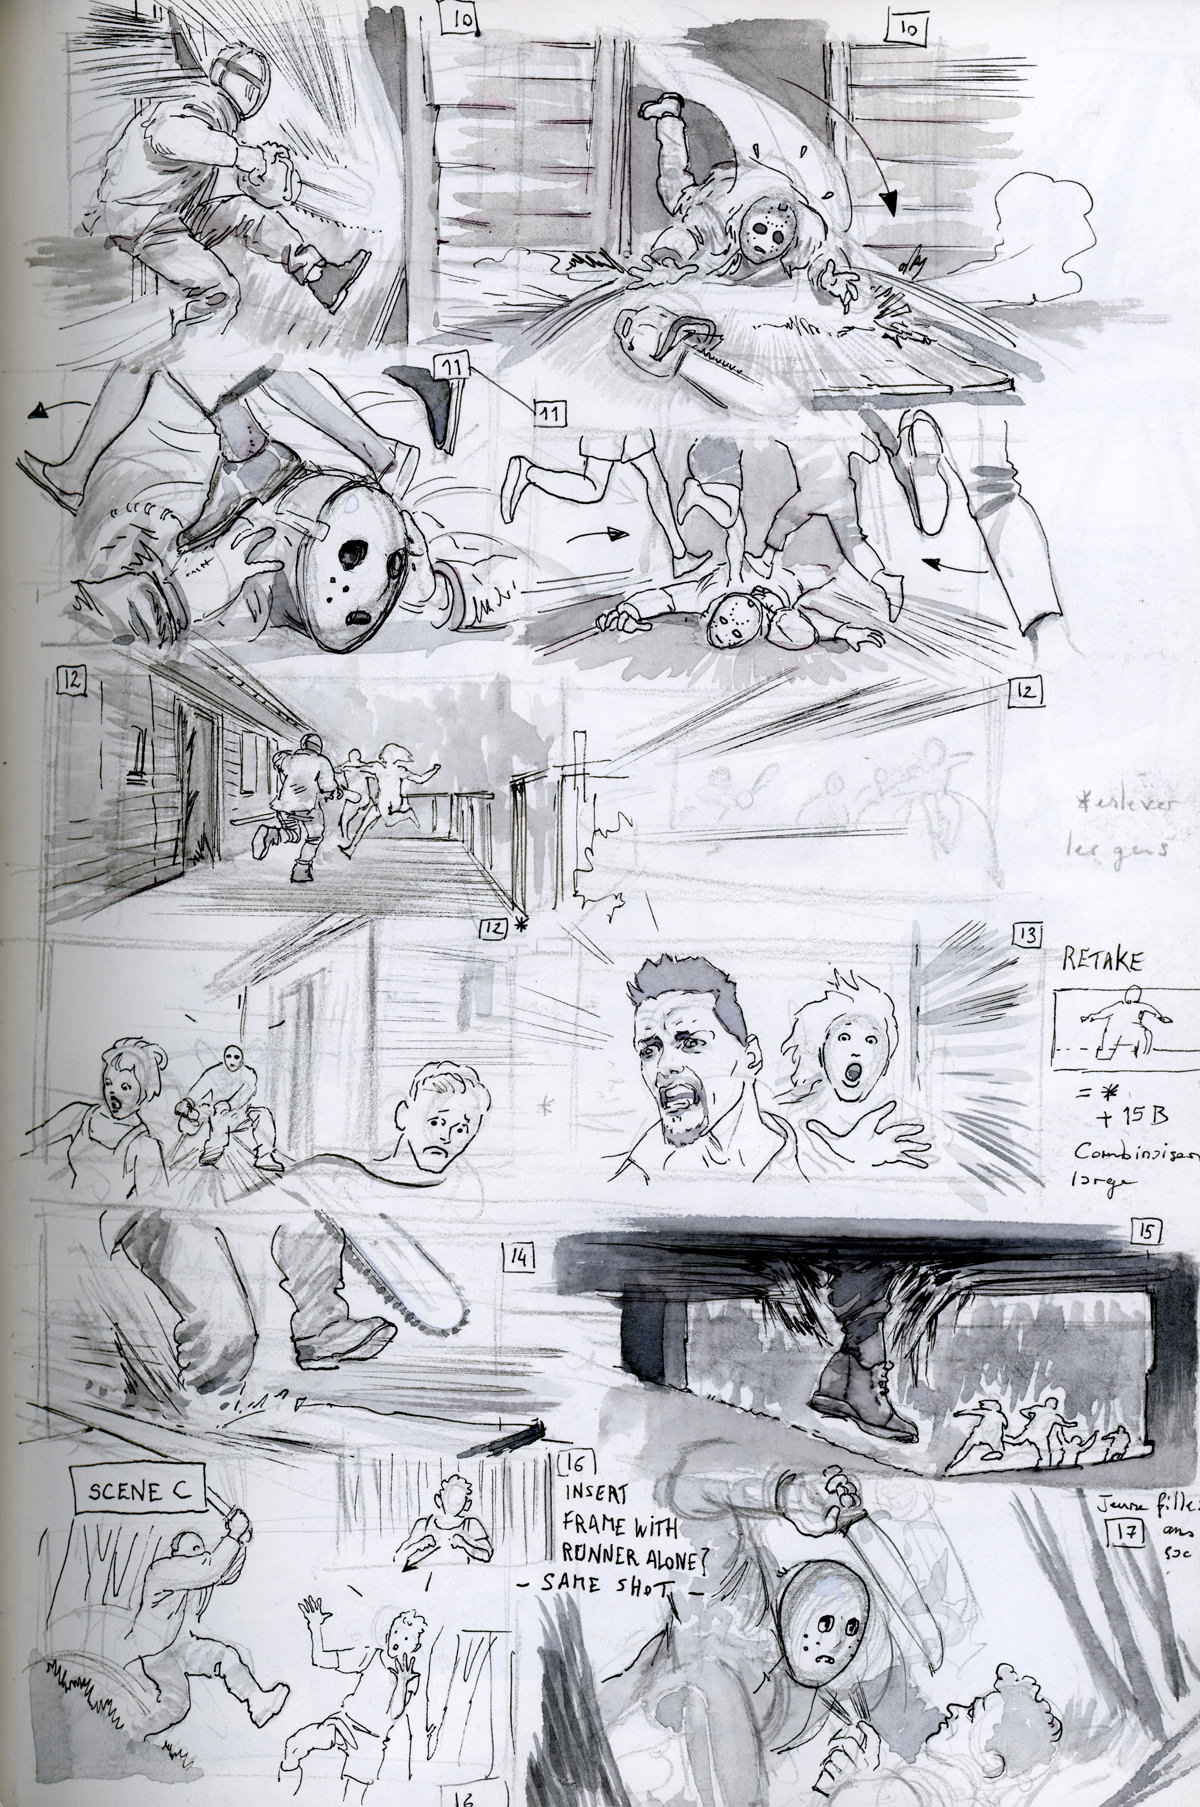 10
10
11
11
12
12
*enlever
les gens
12 *
13
RETAKE
= *
+ 15 B
large
*
14
15
SCENE C
16
INSERT
FRAME WITH
RUNNER ALONE?
- SAME SHOT -
Jeune fille
17
ans
sac
16